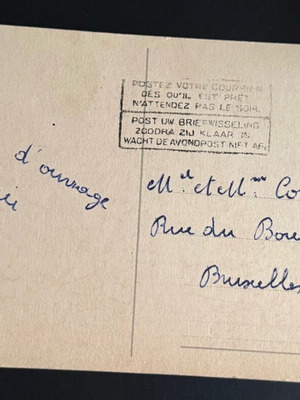 POSTEZ VOTRE COURRIER
DES QU'IL EST PRÊT
N'ATTENDEZ PAS LE SOIR.
POST UW BRIEFWISSELING
ZOODRA ZIJ KLAAR IS
WACHT DE AVONDPOST NIET AF.
d'ouvrage
Ml et Mme Co
Rue du Bou
Bruxelles